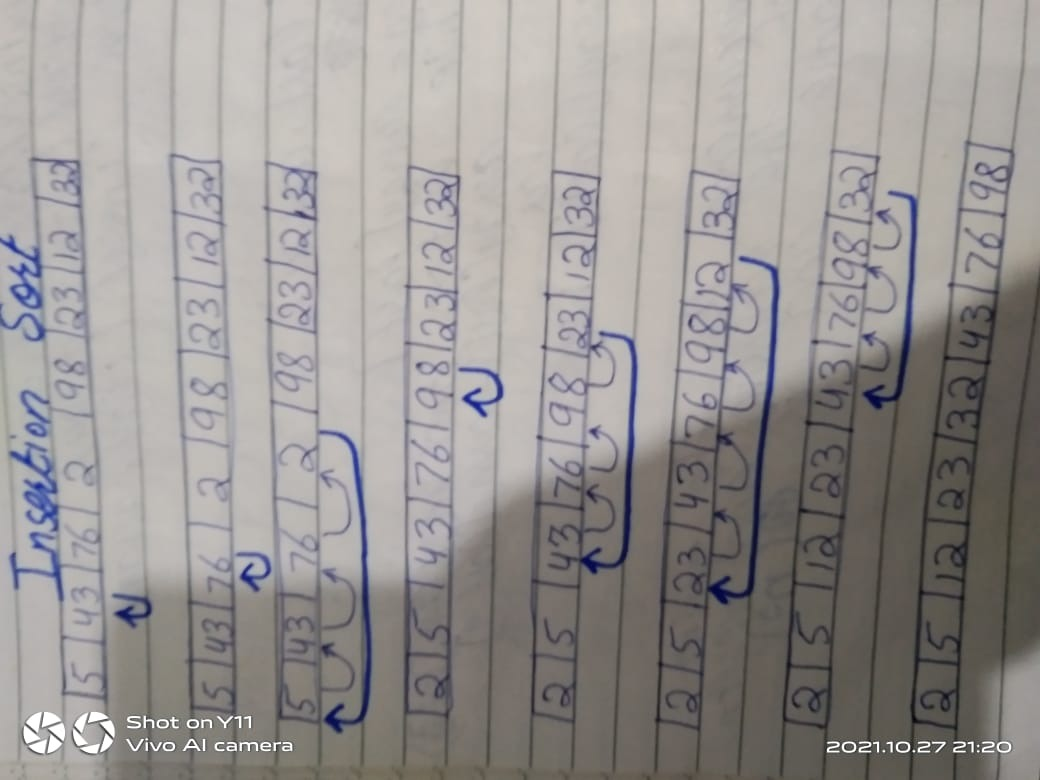 Insertion Sort
5 43 76 2 98 23 12 32
5 43 76 2 98 23 12 32
5 43 76 2 98 23 12 32
2 5 43 76 98 23 12 32
2 5 43 76 98 23 12 32
2 5 23 43 76 98 12 32
2 5 12 23 43 76 98 32
2 5 12 23 32 43 76 98
Shot on Y11
Vivo AI camera
2021.10.27 21:20